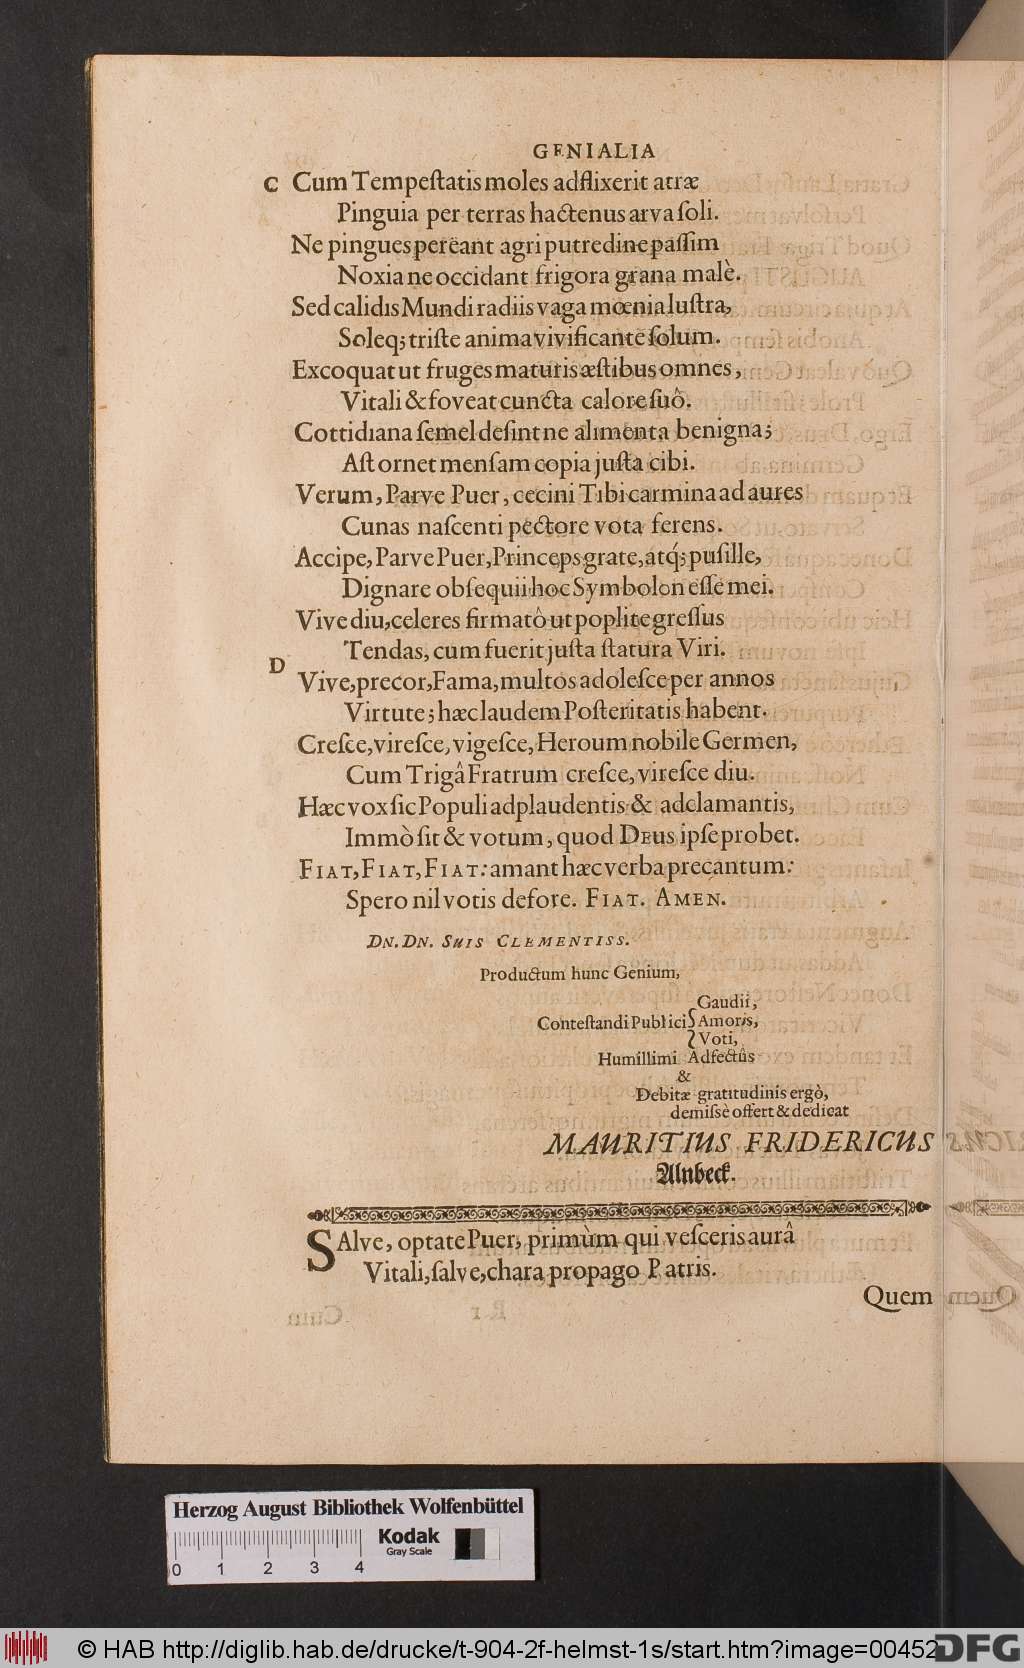 GENIALIA
C Cum Tempeſtatis moles adflixerit atræ
Pinguia per terras hactenus arva ſoli.
Ne pingues pereant agri putredine paſſim
Noxia ne occidant frigora grana malè.
Sed calidis Mundi radiis vaga mœnia luſtra,
Soleq; triſte anima vivificante ſolum.
Excoquat ut fruges maturis æſtibus omnes,
Vitali & foveat cuncta calore ſuô.
Cottidiana ſemel deſint ne alimenta benigna;
Aſt ornet menſam copia juſta cibi.
Verum, Parve Puer, cecini Tibi carmina ad aures
Cunas naſcenti pectore vota ferens.
Accipe, Parve Puer, Princeps grate, atq́; puſille,
Dignare obſequii hoc Symbolon eſſe mei.
Vive diu, celeres firmatô ut poplite greſſus
Tendas, cum fuerit juſta ſtatura Viri.
D
Vive, precor, Fama, multos adoleſce per annos
Virtute; hæc laudem Poſteritatis habent.
Creſce, vireſce, vigeſce, Heroum nobile Germen,
Cum Trigâ Fratrum creſce, vireſce diu.
Hæc vox ſic Populi adplaudentis & adclamantis,
Immò ſit & votum, quod DEUS ipſe probet.
FIAT, FIAT, FIAT: amant hæc verba precantum:
Spero nil votis defore. FIAT. AMEN.
DN. DN. SUIS CLEMENTISS.
Productum hunc Genium,
Gaudii,
Conteſtandi Publici Amoris,
Voti,
Humillimi Adfectûs
&
Debitæ gratitudinis ergò,
demiſsè offert & dedicat
MAURITIUS FRIDERICUS
Alnbeck.
SAlve, optate Puer, primùm qui veſceris aurâ
Vitali, ſalve, chara propago Patris.
Quem
Herzog August Bibliothek Wolfenbüttel
Kodak
Gray Scale
0 1 2 3 4
© HAB http://diglib.hab.de/drucke/t-904-2f-helmst-1s/start.htm?image=00452
DFG